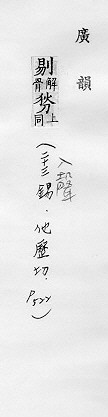 廣韻
剔解骨上同
入聲
(二十三錫．他歷切．P522)